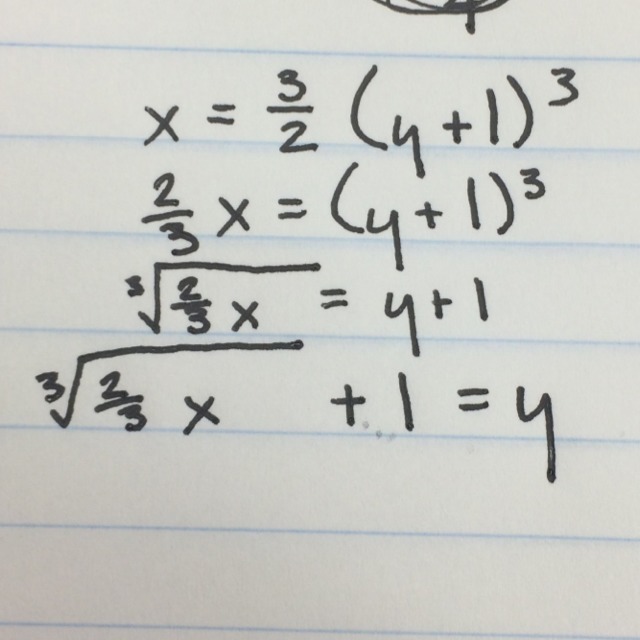 x = 3/2 (y+1)³
2/3 x = (y+1)³
∛(2/3 x) = y+1
∛(2/3 x) + 1 = y